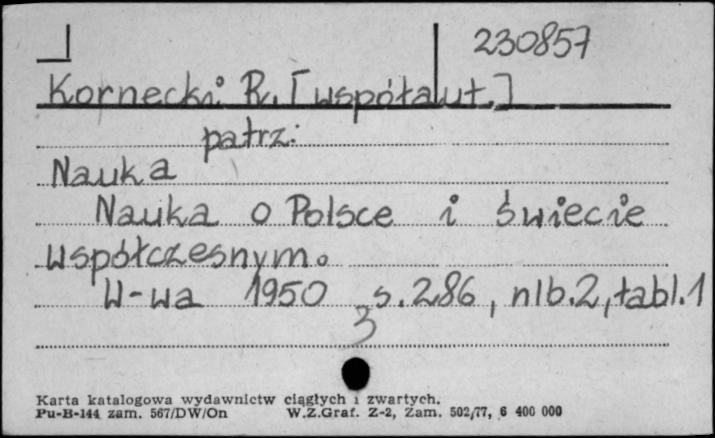 230857
Kornecki R. [współaut.]
patrz:
Nauka
Nauka o Polsce i świecie
współczesnym.
W-wa 1950 s. 286, nlb. 2, tabl. 1
3
Karta katalogowa wydawnictw ciągłych i zwartych.
Pu-B-144 zam. 567/DW/On W.Z.Graf. Z-2, Zam. 502/77, 6 400 000